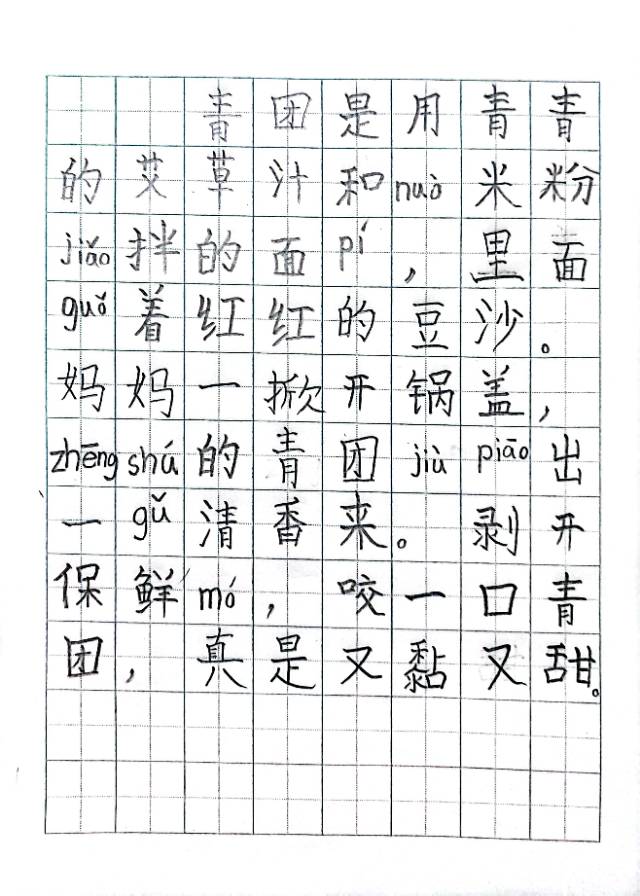 青团是用青青
的艾草汁和nuò米粉
jiǎo拌的面pí，里面
guǒ着红红的豆沙。
妈妈一掀开锅盖，
zhēngshú的青团jiùpiāo出
一gǔ清香来。剥开
保鲜mó，咬一口青
团，真是又黏又甜。